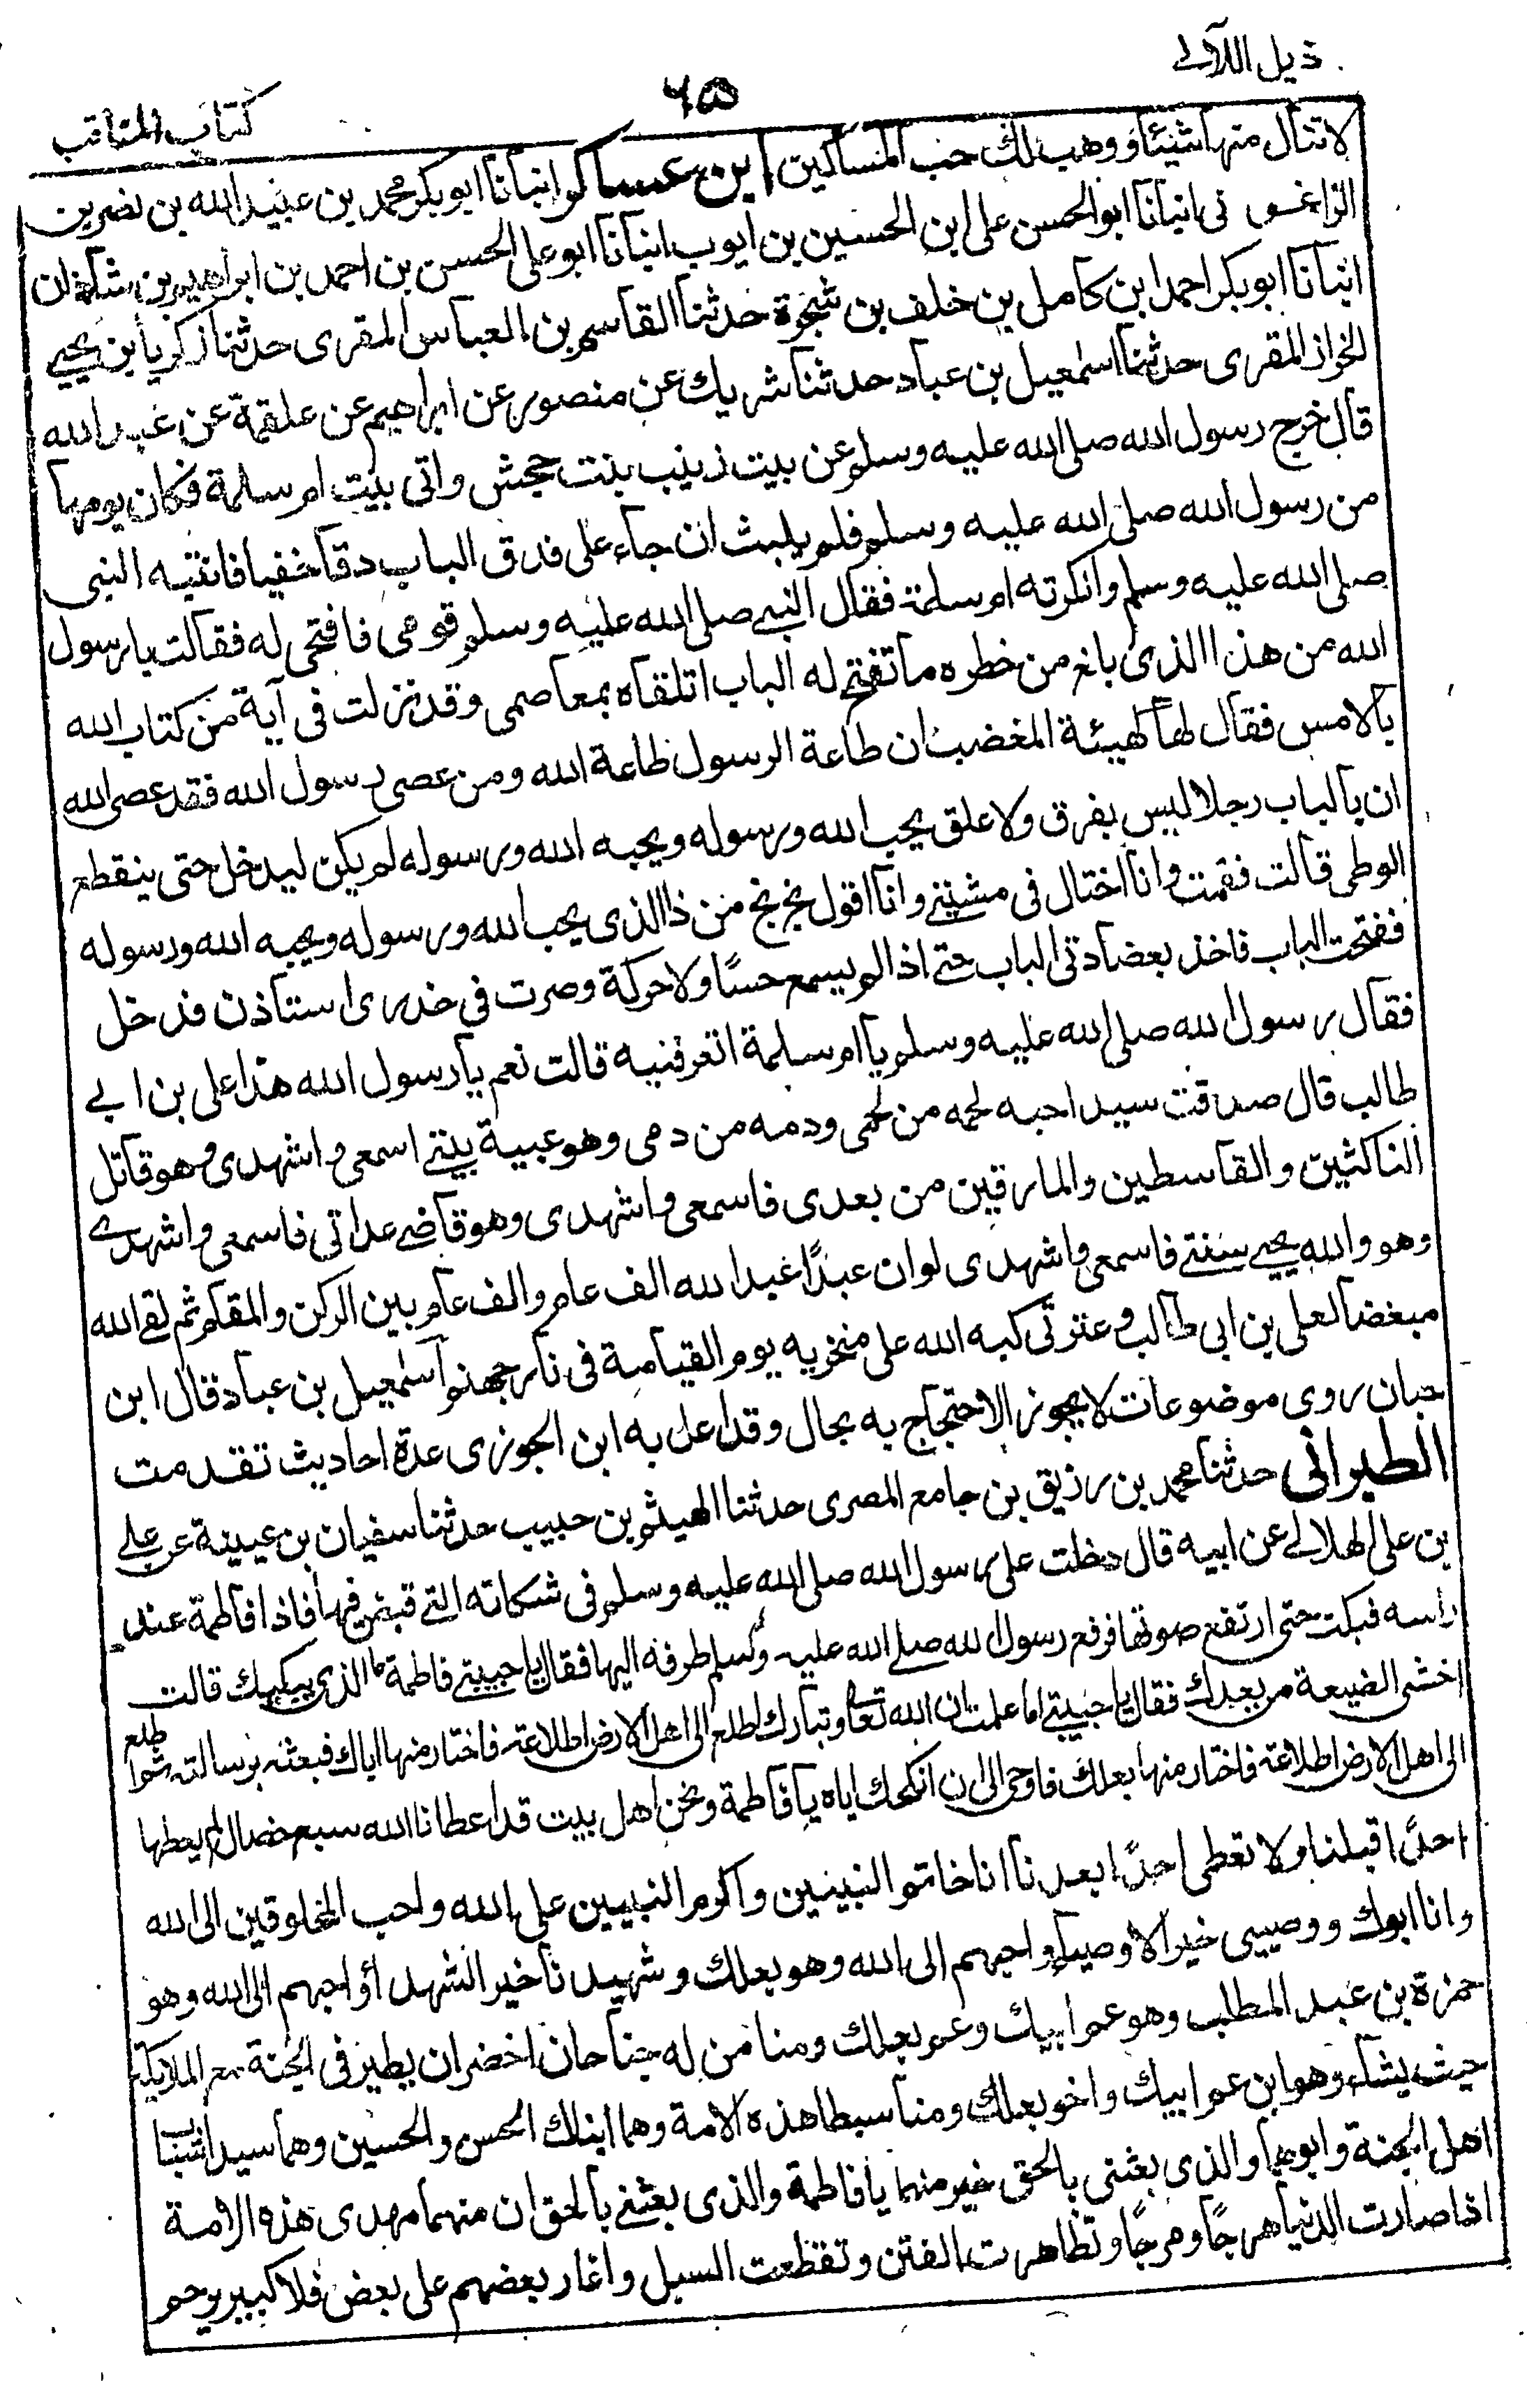 ذيل اللآلے
٦٥
كتاب المناقب
لا تنال منها شيئا و وهب لك حب المساكين ابن عساكر انبانا ابو بكر محمد بن عبيد الله بن نصر بن
الزاغونى انبانا ابو الحسن على ابن الحسين بن ايوب انبانا ابو على الحسن بن احمد بن ابراهيم بن شاذان
انبانا ابو بكر احمد ابن كامل بن خلف بن شجرة حدثنا القاسم بن العباس المقرى حدثنا زكريا بن يحيے
الخواز المقرى حدثنا اسمعيل بن عباد حدثنا شريك عن منصور عن ابراهيم عن علقمة عن عبد الله
قال خرج رسول الله صلى الله عليه وسلم عن بيت زينب بنت جحش واتى بيت ام سلمة فكان يومها
من رسول الله صلى الله عليه وسلم فلم يلبث ان جاء على فدق الباب دقا خفيا فانتبه النبى
صلى الله عليه وسلم وانكرته ام سلمة فقال النبے صلى الله عليه وسلم قومى فافتحى له فقالت يا رسول
الله من هذا الذى بلغ من خطره ما تفتح له الباب اتلقاه بمعاصمى وقد نزلت فى آية من كتاب الله
بالامس فقال لها كهيئة المغضب ان طاعة الرسول طاعة الله ومن عصى رسول الله فقد عصى الله
ان بالباب رجلا ليس بفرق ولا علق يحب الله ورسوله ويحبه الله ورسوله لم يكن ليدخل حتى ينقطع
الوطى قالت فقمت وانا اختال فى مشيتے وانا اقول بخ بخ من ذا الذى يحب الله ورسوله ويحبه الله ورسوله
ففتحت الباب فاخذ بعضادتى الباب حتے اذا لم يسمع حسًا ولا حركة وصرت فى خدرى استاذن فدخل
فقال رسول الله صلى الله عليه وسلم يا ام سلمة اتعرفنيه قالت نعم يا رسول الله هذا على بن ابے
طالب قال صدقت سيد احبه لحمه من لحمى ودمه من دمى وهو عيبة بيتے اسمعى واشهدى وهو قاتل
الناكثين والقاسطين والمارقين من بعدى فاسمعى واشهدى وهو قاضے عداتى فاسمعى واشهدے
وهو والله يحيے سنتے فاسمعى واشهدى لو ان عبدًا عبد الله الف عام والف عام بين الركن والمقام ثم لقے الله
مبغضا لعلى بن ابى طالب وعترتى كبه الله على منخريه يوم القيامة فى نار جهنم اسمعيل بن عباد قال ابن
حبان روى موضوعات لا يجوز الاحتجاج به بحال وقد اعل به ابن الجوزى عدة احاديث تقدمت
الطبرانى حدثنا محمد بن رزيق بن جامع المصرى حدثنا الهيثم بن حبيب حدثنا سفيان بن عيينة عن علے
بن على الهلالے عن ابيه قال دخلت على رسول الله صلى الله عليه وسلم فى شكاته التے قبض فيها فاذا فاطمة عند
راسه فبكت حتى ارتفع صوتها فرفع رسول الله صلے الله عليه وسلم طرفه اليها فقال يا حبيبتے فاطمة ما الذى يبكيك قالت
اخشى الضيعة من بعدك فقال يا حبيبتے اما علمت ان الله تعا وتبارك اطلع الى اهل الارض اطلاعة فاختار منها اباك فبعثه برسالته ثم اطلع
الى اهل الارض اطلاعة فاختار منها بعلك فاوحى الى ان انكحك اياه يا فاطمة ونحن اهل بيت قد اعطانا الله سبع خصال لم يعطها
احدًا قبلنا ولا تعطى احدًا بعدنا انا خاتم النبيين واكرم النبيين على الله واحب المخلوقين الى الله
وانا ابوك ووصيى خير الاوصياء واحبهم الى الله وهو بعلك وشهيدنا خير الشهداء واحبهم الى الله وهو
حمزة بن عبد المطلب وهو عم ابيك وعم بعلك ومنا من له جناحان اخضران يطير فى الجنة مع الملائكة
حيث يشاء وهو ابن عم ابيك واخو بعلك ومنا سبطا هذه الامة وهما ابناك الحسن والحسين وهما سيدا شباب
اهل الجنة وابوهما والذى بعثنى بالحق خير منهما يا فاطمة والذى بعثنے بالحق ان منهما مهدى هذه الامة
اذا صارت الدنيا هرجًا ومرجًا وتظاهرت الفتن وتقطعت السبل واغار بعضهم على بعض فلا كبير يرحم